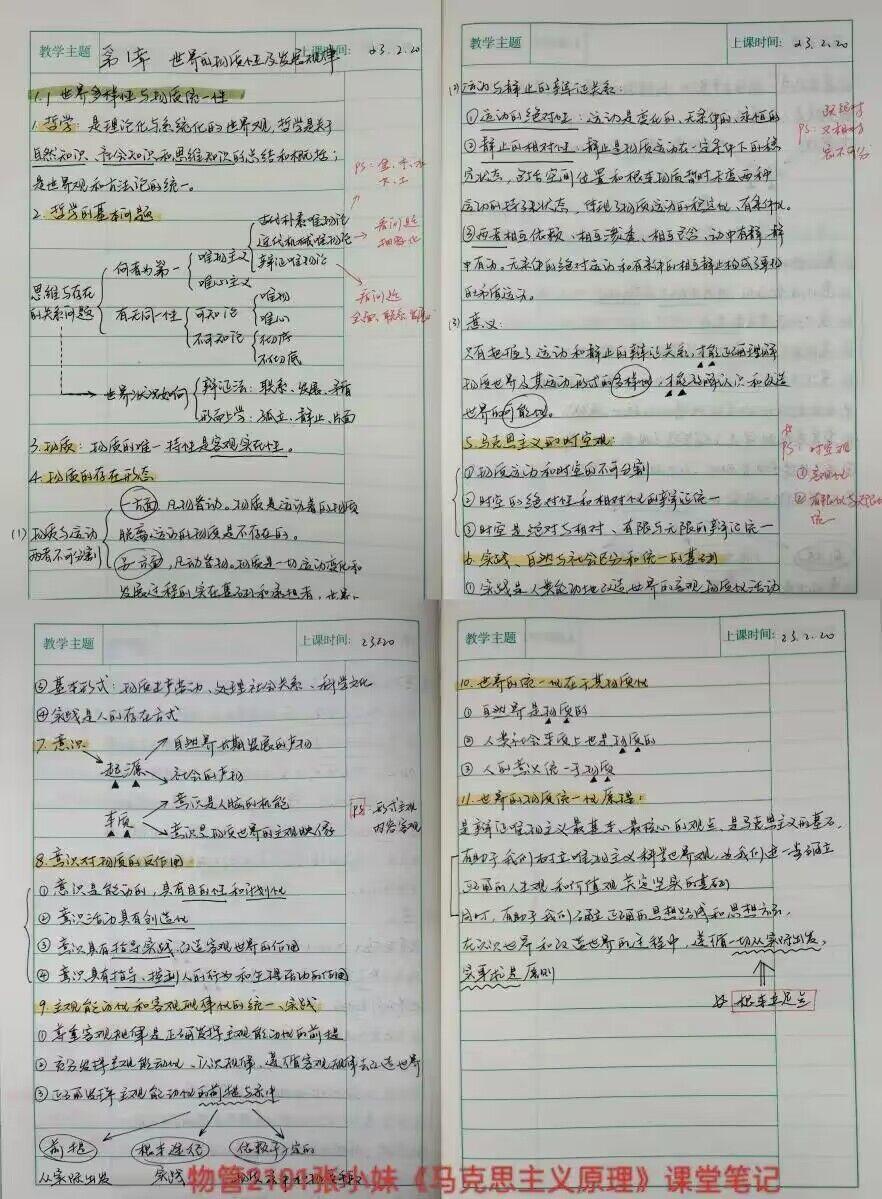 教学主题 第1章 世界的物质性及发展规律 上课时间: 23.2.20
1.1 世界多样性与物质统一性
1. 哲学: 是理论化与系统化的世界观, 哲学是关于
自然知识、社会知识和思维知识的总结和概括;
是世界观和方法论的统一。
PS: 金、木、水
火、土
2. 哲学的基本问题
思维与存在
的关系问题
何者为第一
唯物主义
古代朴素唯物论
近代机械唯物论
辩证唯物论
看问题
看问题
唯心主义
有无同一性
可知论
唯物
唯心
不可知论
不彻底
世界状况如何
辩证法: 联系、发展、矛盾
形而上学: 孤立、静止、片面
3. 物质: 物质的唯一特性是客观实在性。
4. 物质的存在形态
(1) 物质与运动
两者不可分割
一方面, 凡物皆动。物质是运动着的物质
脱离运动的物质是不存在的。
另一方面, 凡动皆物。物质是一切运动变化和
发展过程的实在基础和承担者, 世界上
教学主题 上课时间: 23.2.20
(2) 运动与静止的辩证关系:
①运动的绝对性: 运动是变化的、无条件的、永恒的
②静止的相对性: 静止是物质运动在一定条件下的稳
定状态, 包括空间位置和根本性质暂时未变两种
运动的特殊状态, 体现了物质运动的稳定性、有条件性。
PS: 既绝对
又相对
③两者相互依赖、相互渗透、相互包含, 动中有静、静
中有动。无条件的绝对运动和有条件的相对静止构成了事物
的矛盾运动。
(3) 意义:
只有把握了运动和静止的辩证关系, 才能正确理解
物质世界及其运动形式的多样性, 才能理解认识和改造
世界的可能性。
5. 马克思主义的时空观:
①物质运动和时空的不可分割
②时空的绝对性和相对性的辩证统一
③时空是绝对与相对、有限与无限的辩证统一
PS: 时空观
①客观性
②有限性与无限
统一
6. 实践、自然与社会区分和统一的基础
①实践是人类能动地改造世界的客观物质性活动
教学主题 上课时间: 23.2.20
③基本形式: 物质生产劳动、处理社会关系、科学文化
④实践是人的存在方式
7. 意识
起源
自然界长期发展的产物
社会的产物
本质
意识是人脑的机能
意识是物质世界的主观映像
PS: 形式主观
内容客观
8. 意识对物质的反作用
① 意识是能动的, 具有目的性和计划性
② 意识活动具有创造性
③ 意识具有指导实践、改造客观世界的作用
④ 意识具有指导、控制人的行为和生理活动的作用
9. 主观能动性和客观规律性的统一、实践
① 尊重客观规律是正确发挥主观能动性的前提
② 充分发挥主观能动性、认识规律、遵循客观规律去改造世界
③ 正确发挥主观能动性的前提与条件
前提 根本途径 依赖于一定的
从实际出发 实践
教学主题 上课时间: 23.2.20
10. 世界的统一性在于其物质性
① 自然界是物质的
② 人类社会本质上也是物质的
③ 人的意识统一于物质
11. 世界的物质统一性原理:
是辩证唯物主义最基本、最核心的观点, 是马克思主义的基石。
有助于我们树立唯物主义科学世界观, 为我们进一步确立
正确的人生观和价值观奠定坚实的基础
同时, 有助于我们确立正确的思想路线和思想方法,
在认识世界和改造世界的过程中, 遵循一切从实际出发,
实事求是原则
根本立足点
物管2101张小妹《马克思主义原理》课堂笔记